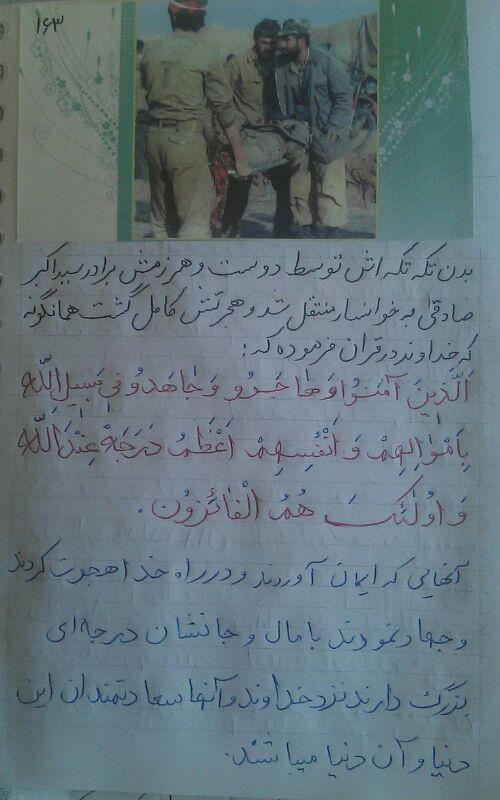 ۱۶۳
بدن تکه تکه اش توسط دوست و همرزمش برادر سید اکبر
صادقی به خوانسار منتقل شد و هجرتش کامل گشت همانگونه
که خداوند در قران فرموده که:
اَلَّذینَ آمَنُوا وَ هاجَرو وَ جاهَدو فی سَبیلِ اللّه
بِاَمْوالِهِمْ وَ اَنْفُسِهِمْ اَعْظَمُ دَرَجَةً عِنْدَاللّه
وَ اوُلئکَ هُمُ الْفائزوُن.
آنهایی که ایمان آوردند و در راه خدا هجرت کردند
و جهاد نمودند با مال و جانشان درجه‌ای
بزرگ دارند نزد خداوند و آنها سعادتمندان این
دنیا و آن دنیا میباشند.